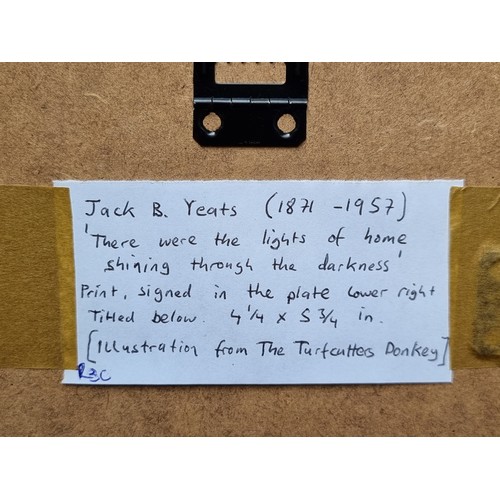 Jack B. Yeats (1871 - 1957)
'There were the lights of home
shining through the darkness'
Print, signed in the plate lower right
Titled below. 4 1/4 x 5 3/4 in.
[Illustration from The Turfcutters Donkey]